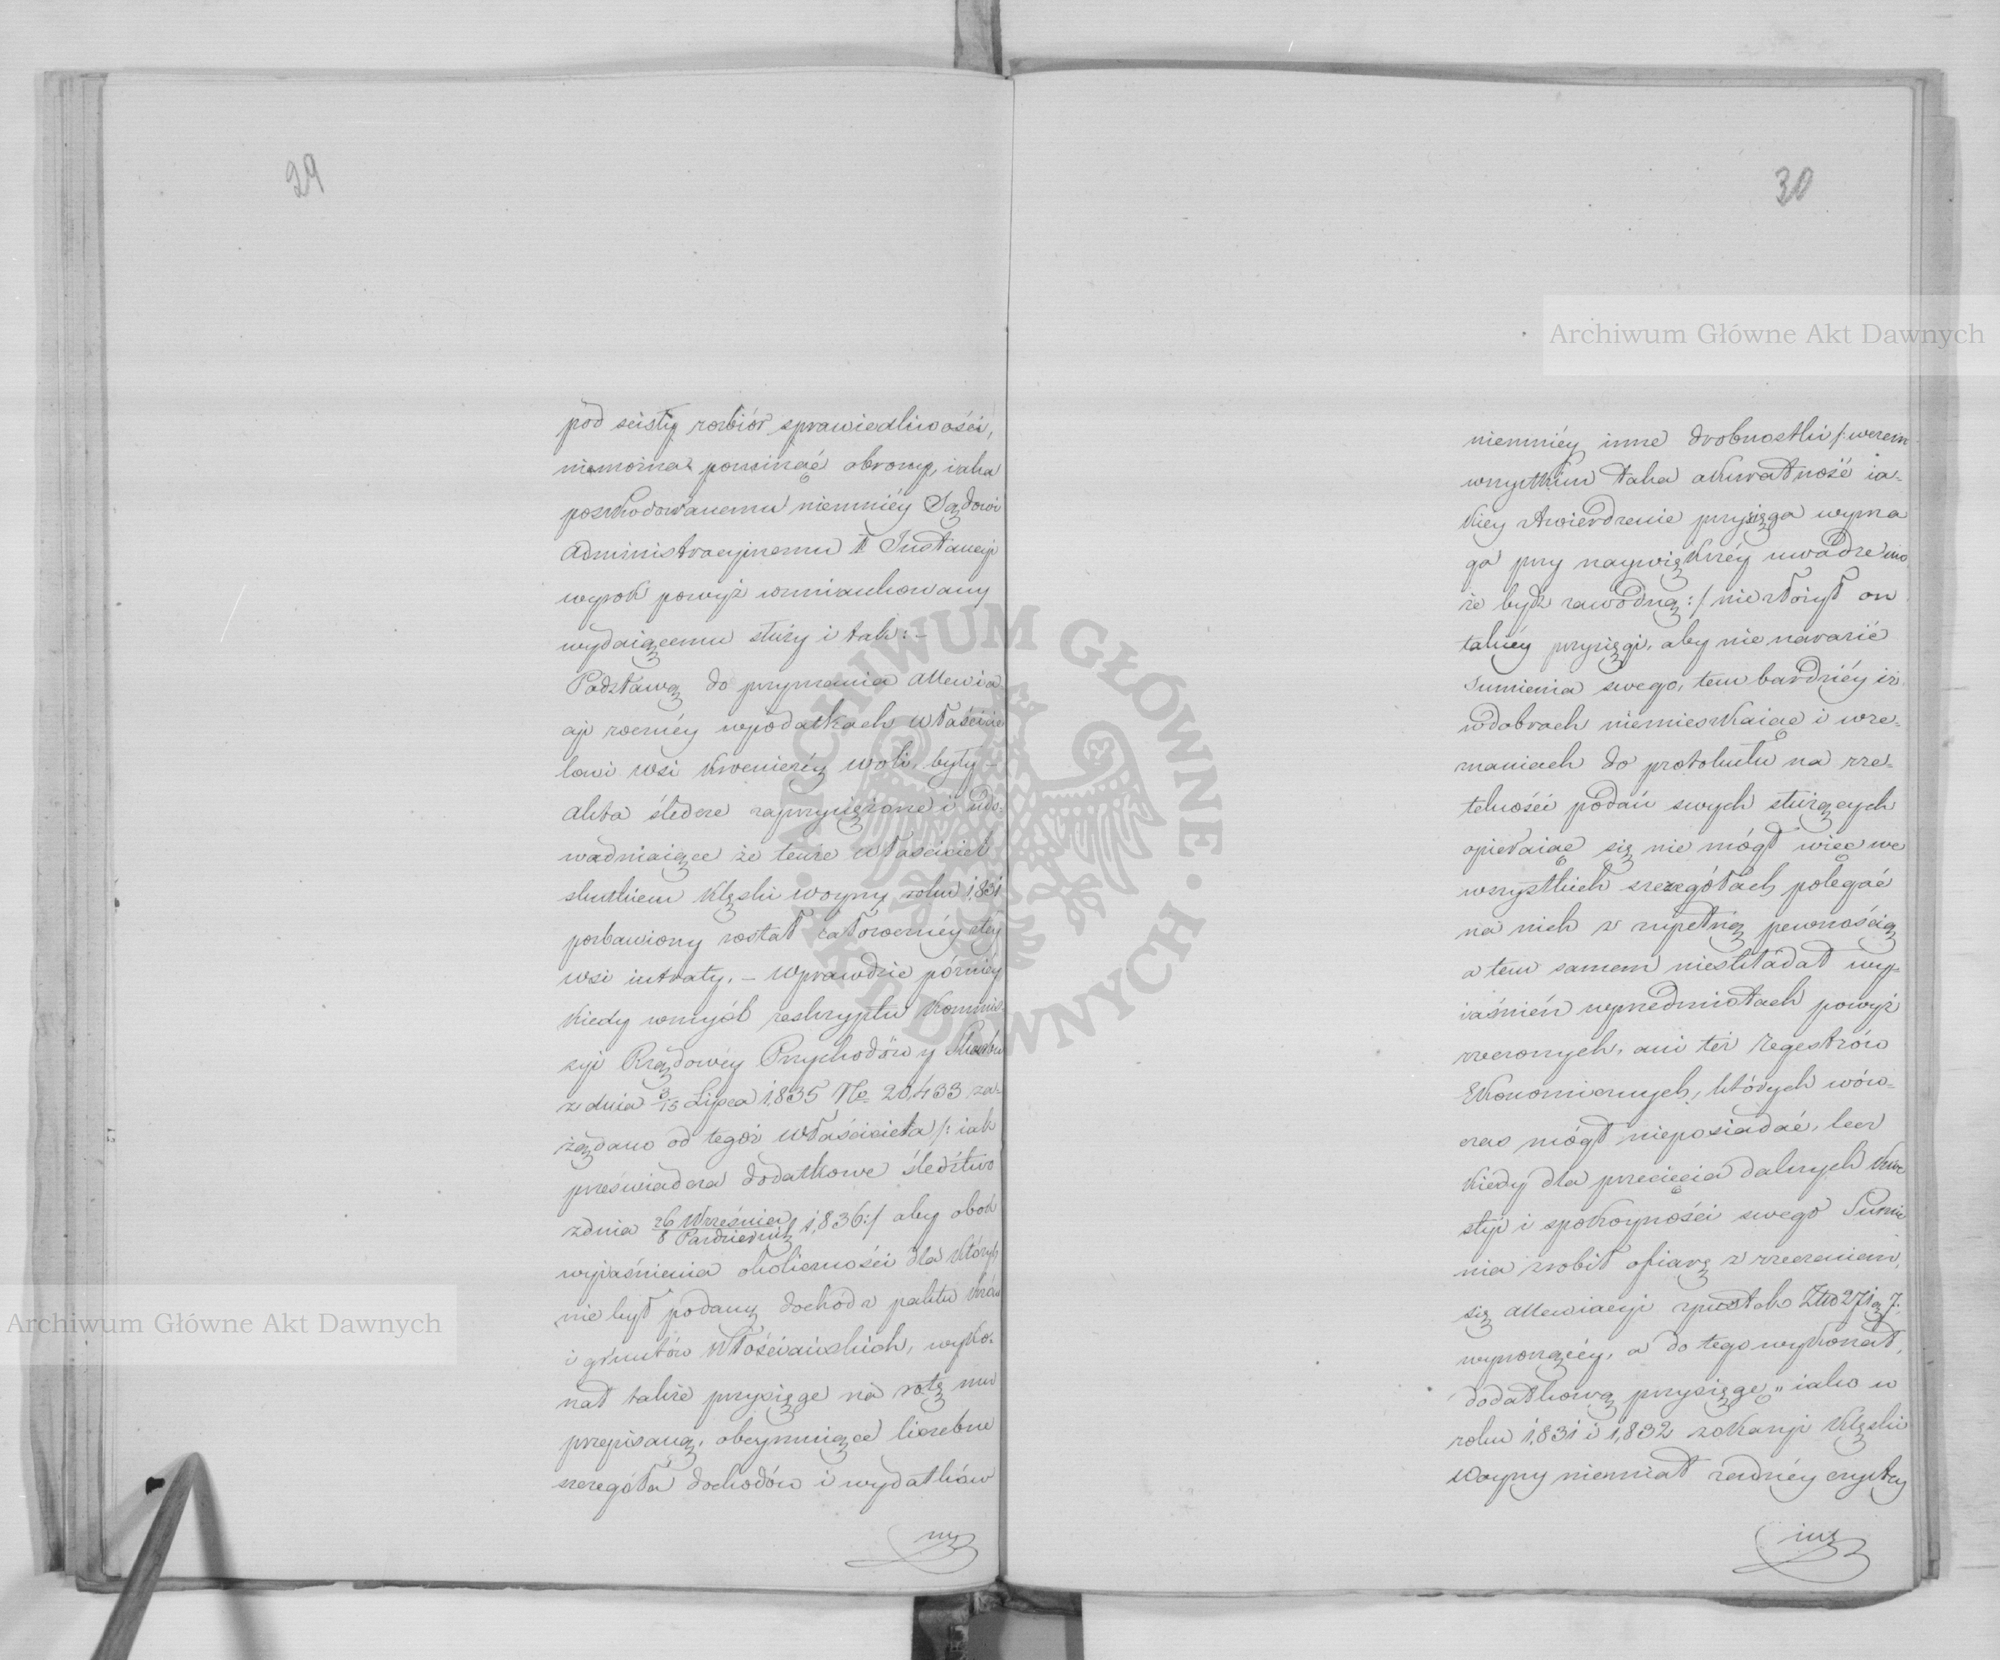 29
pod scisły rozbiór sprawiedliwości,
niemożna pominąć obrony, iaka
poszkodowanemu niemniéy Sądowi
Administracyjnemu II Instancyi
wyrok powyż wzmiankowany
wydaiącemu służy i tak: –
Podstawą do przyznania allewia-
cyi rocznéy wpodatkach właścicie
lowi wsi woli, były –
akta śledcze zaprzysiężone i udo-
wadniaiące że tenże właściciel
skutkiem klęski woyny roku 1,831
pozbawiony został całorocznéy z téy
wsi intraty. – Wprawdzie późniéy
kiedy wmyśl reskryptu Kommis-
syi Rządowéy Przychodów y Skarbu
z dnia 3/15 Lipca 1,835 No 20,433 za-
żądano od tegoż właściciela /: iak
przeświadcza dodatkowe śledztwo
zdnia 26 Września/8 Październik 1,836 :/ aby obok
wyjaśnienia okoliczności dla których
nie był podany dochod z paktu krów
i gruntów włościańskich, wyko-
nał także przysięge na rotę mu
przepisaną, obeymuiące liczebne
szczegóła dochodów i wydatków
30
niemniéy inne drobnostki /: wczem
wszystkiem taka akuratność ia-
kiey stwierdzenie przysięga wyma
ga przy naywiększéy uwadze mo
że bydź zawodną :/ nie złożył on
takiéy przysięgi, aby nie narazić
Sumienia swego, tem bardziéy iż
wdobrach niemieszkaiąc i wze-
znaniach do protokułu na rze-
telności podań swych służących
opieraiąc się nie mógł więc we
wszystkich szczegółach polegać
na nich z zupełną pewnością
a tem samem nieskładał wy-
iaśnień wprzedmiotach powyż
rzeczonych, ani też regestrów
Ekonomicznych, których wów-
czas mógł nieposiadać, lecz
kiedy dla przecięcia dalszych kwe
styi i spokoyności swego Sumie
nia zrobił ofiarę z zrzeczeniem
się allewiacyi
wynoszącéy, a do tego wykonał
dodatkową przysięgę „iako w
roku 1,831 i 1,832 zokazyi klęski
woyny niemiał żadnéy czystey